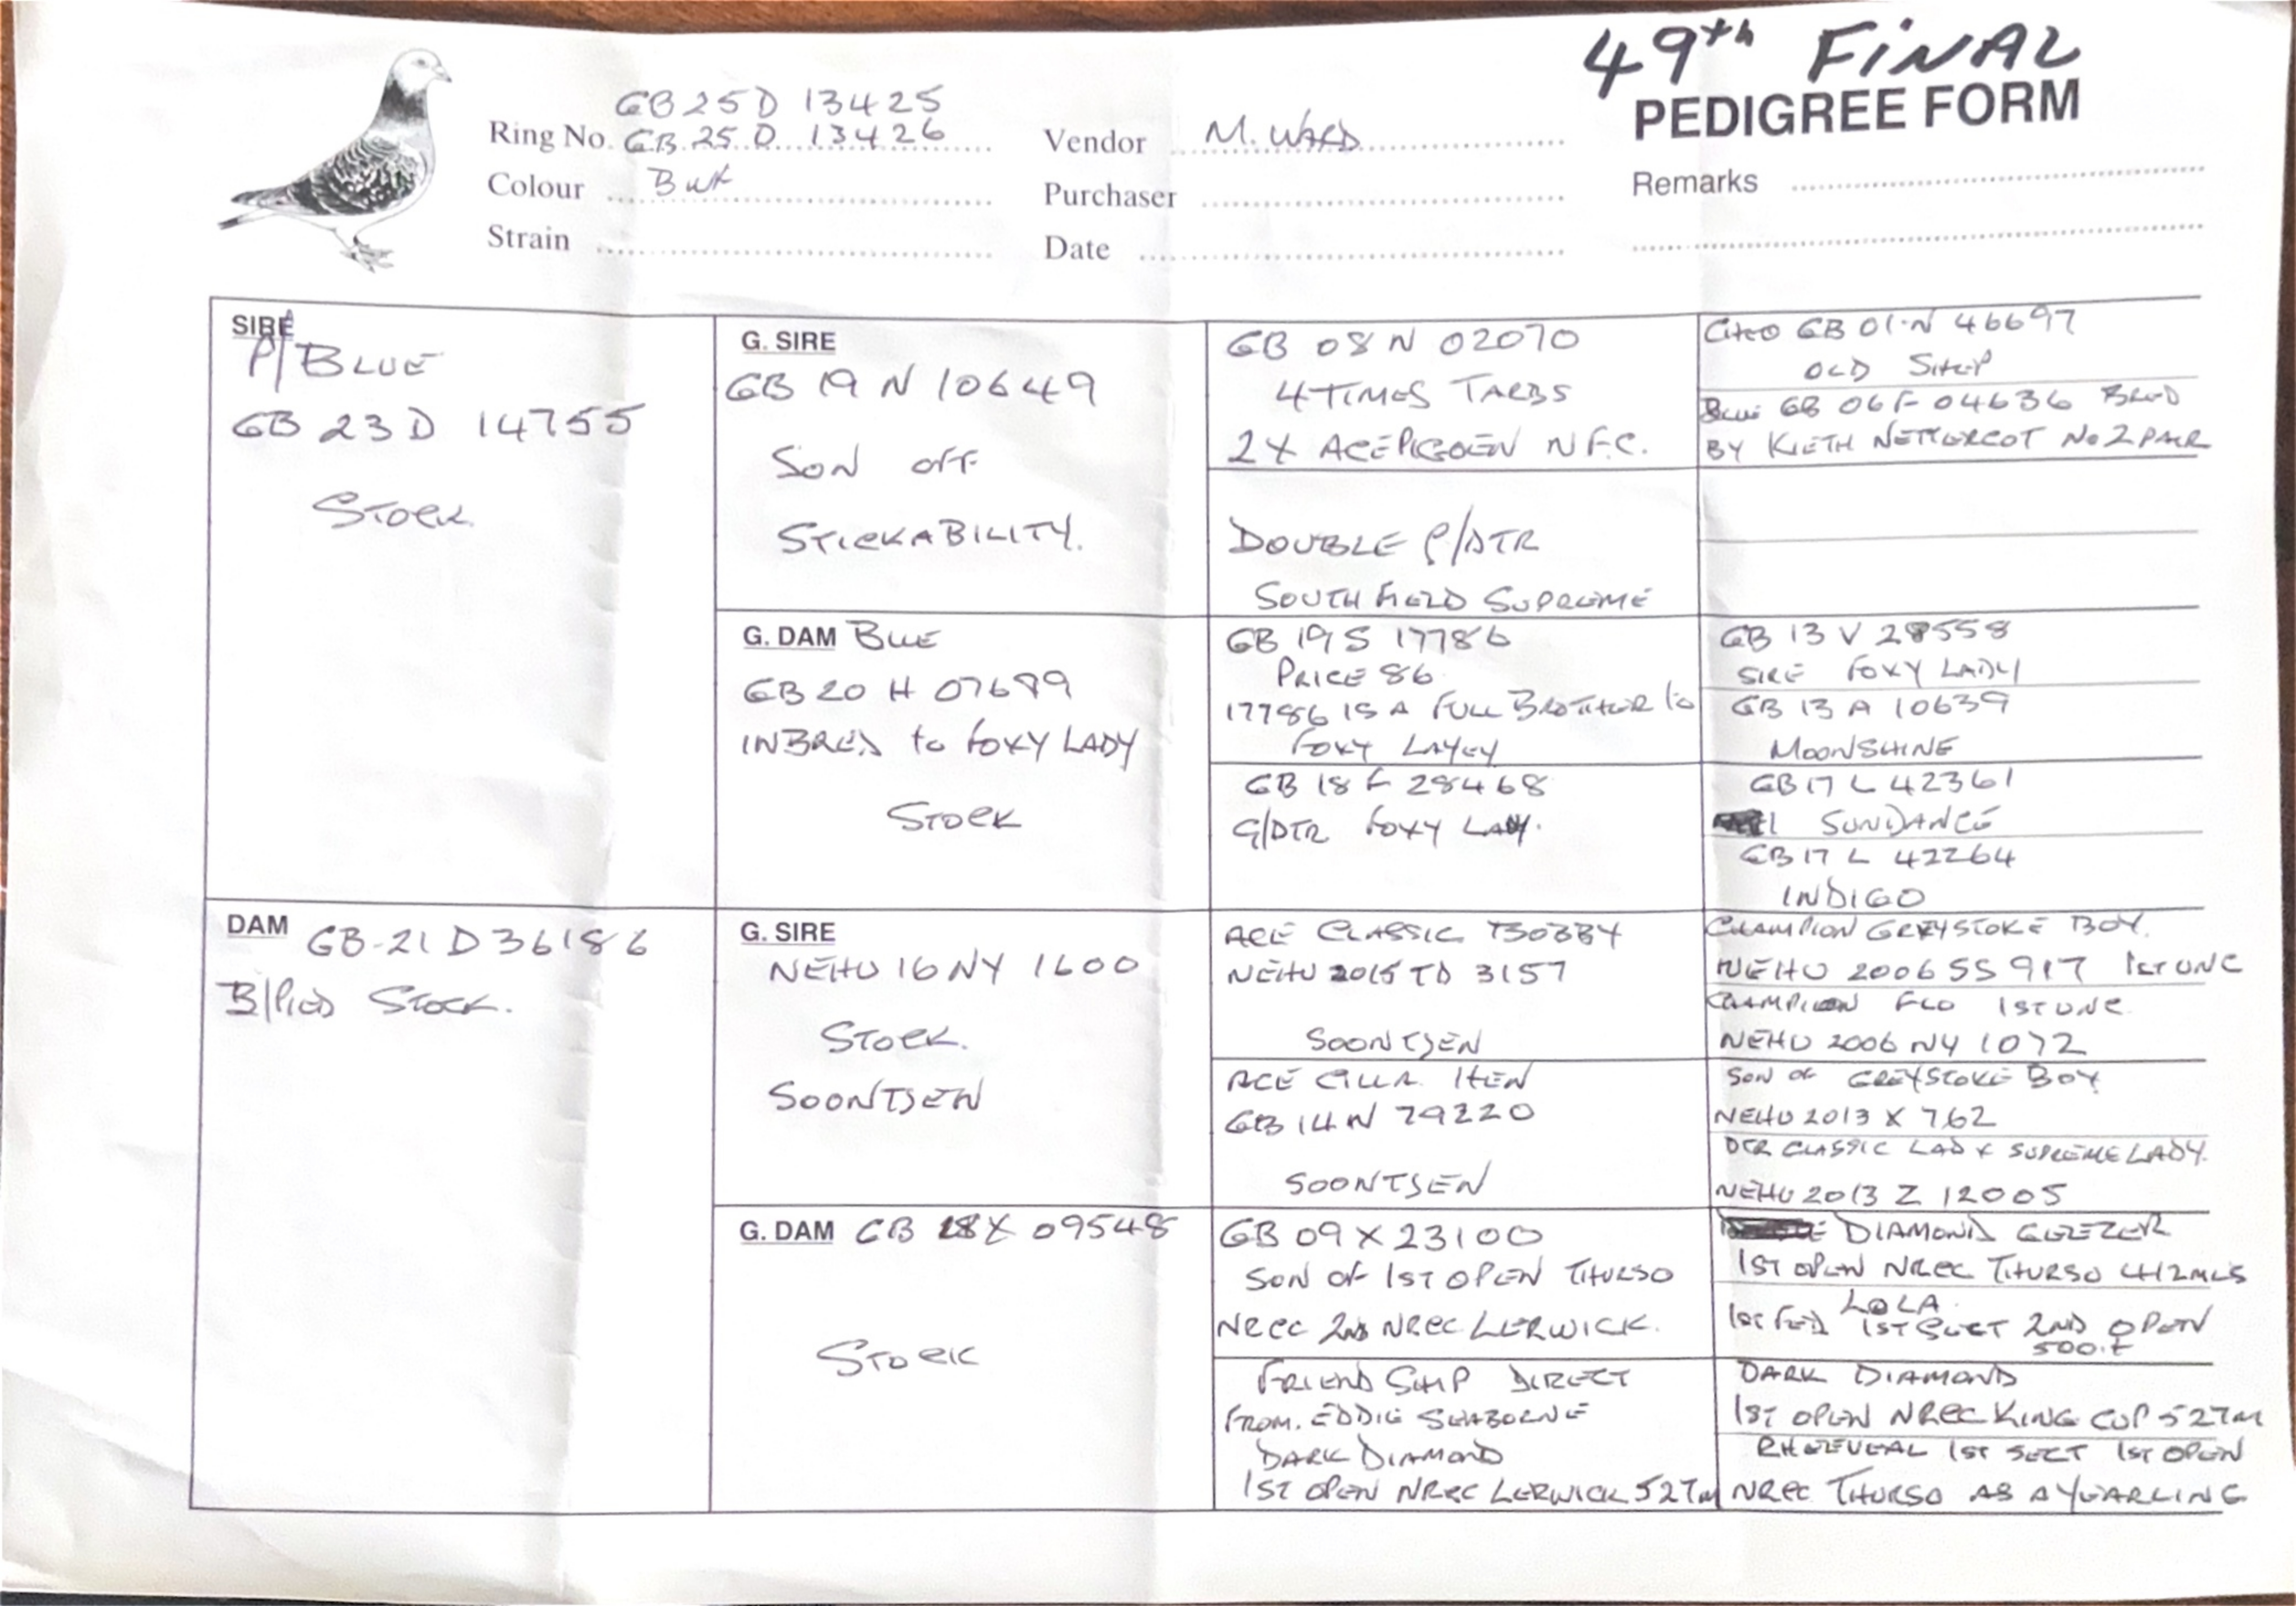 49th FINAL
PEDIGREE FORM
GB 25 D 13425
Ring No. GB 25 D 13426
Colour
Strain
Vendor M. WARD
Purchaser
Date
Remarks
SIRE
P/BLUE
GB 23 D 14755
STOCK.
G. SIRE
GB 19 N 10649
SON OFF
STICKABILITY.
GB 08 N 02070
4 TIMES TARBS
2 X ACE PIGOEN N.F.C.
CHEQ GB 01.N 46697
OLD SHEP
BLUE GB 06 F 04636 BRED
BY KIETH NETTERCOT No 2 PAIR
DOUBLE G/DTR
SOUTHFIELD SUPREME
G. DAM BLUE
GB 20 H 07699
INBRED to FOXY LADY
STOCK
GB 19 S 17786
PRICE 86
17786 IS A FULL BROTHER to
FOXY LAYEY
GB 13 V 28558
SIRE FOXY LADY
GB 13 A 10639
MOONSHINE
GB 18 F 28468
G/DTR FOXY LADY.
GB 17 L 42361
SUNDANCE
GB 17 L 42264
INDIGO
DAM GB-21 D 36186
B/PIED STOCK.
G. SIRE
NEHU 16 NY 1600
STOCK.
SOONTJEN
ACE CLASSIC BOBBY
NEHU 2015 TD 3157
SOONTJEN
CHAMPION GREYSTOKE BOY.
NEHU 2006 SS 917 1ST UNC
CHAMPION FLO 1ST UNC.
NEHU 2006 NY 1072
ACE CILLA HEN
GB 14 N 79220
SOONTJEN
SON OF GREYSTOKE BOY
NEHU 2013 X 762
DTR CLASSIC LAD X SUPREME LADY.
NEHU 2013 Z 12005
G. DAM GB 18 X 09548
STOCK
GB 09 X 23100
SON OF 1ST OPEN THURSO
NRCC 2ND NRCC LERWICK.
DIAMOND GEEZER
1ST OPEN NRCC THURSO 412MLS
LOLA
1ST FED 1ST SECT 2ND OPEN
FRIENDSHIP DIRECT
FROM. EDDIE SEABORNE
DARK DIAMOND
1ST OPEN NRCC LERWICK 527m
DARK DIAMOND
1ST OPEN NRCC KING CUP 527m
1ST SECT 1ST OPEN
NRCC THURSO AS A YEARLING